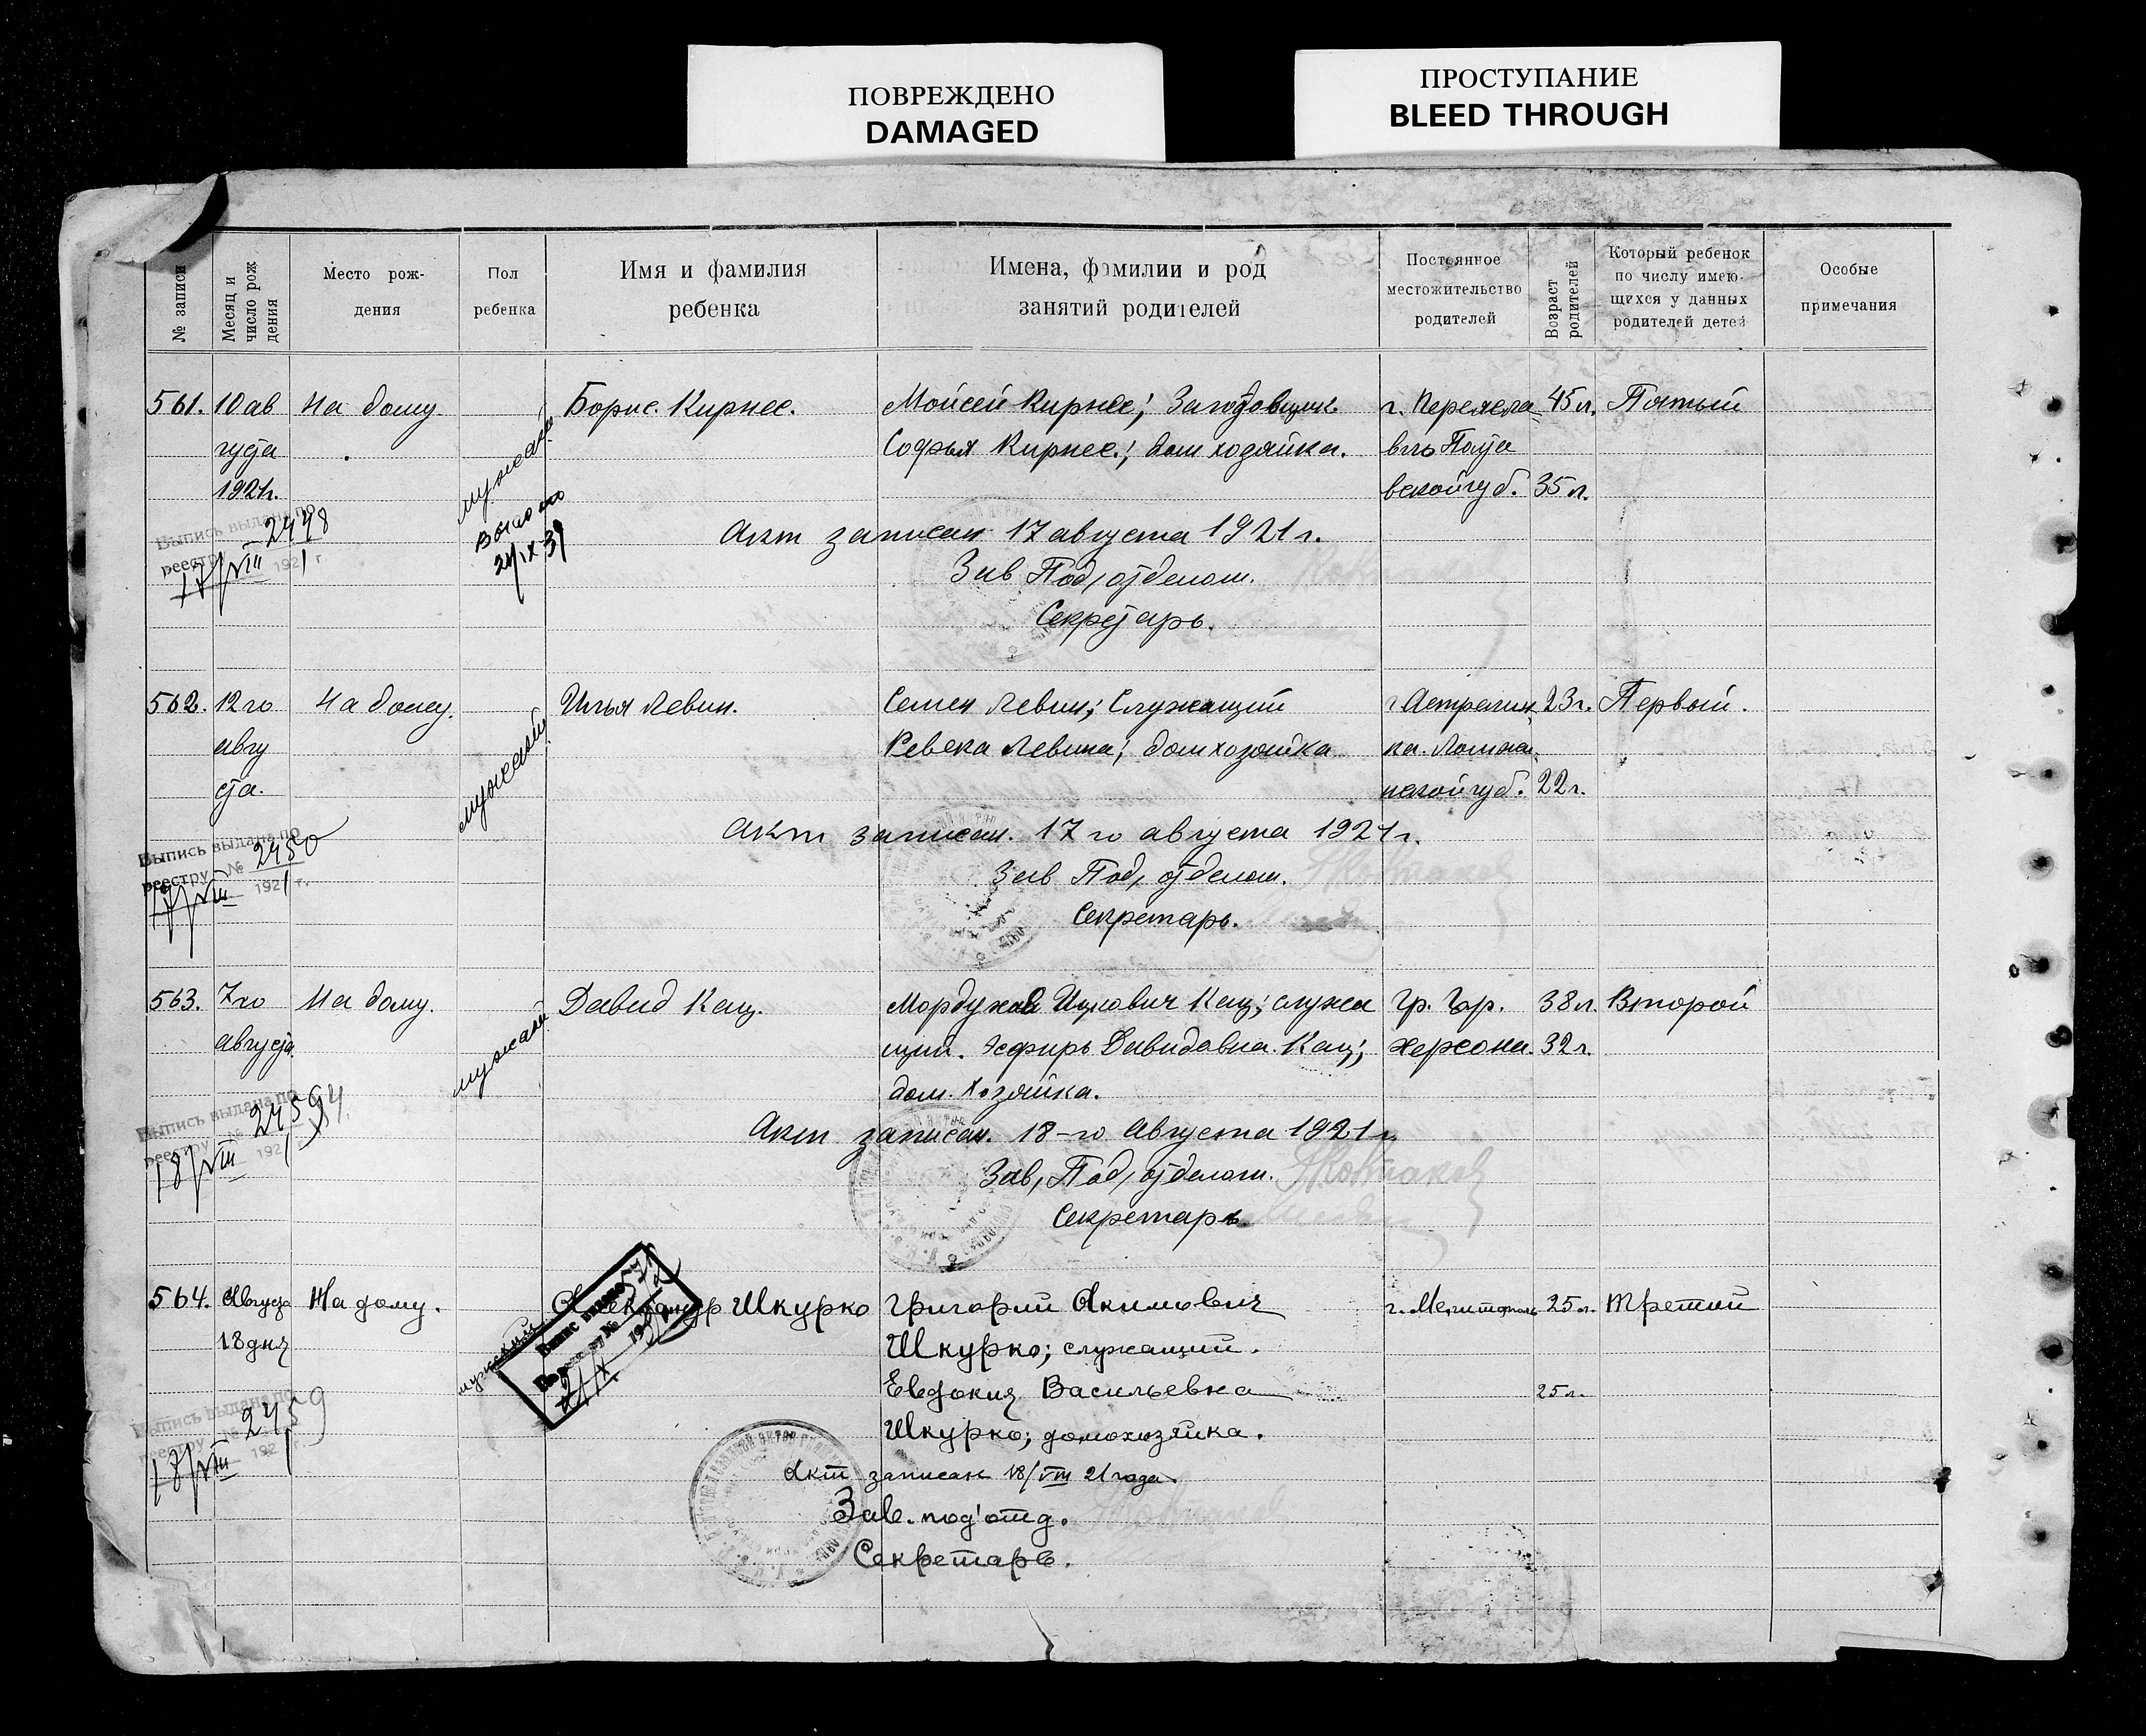 ПОВРЕЖДЕНО
DAMAGED
ПРОСТУПАНИЕ
BLEED THROUGH
№ записи
Месяц и число рож дения
Место рож-
дения
Пол
ребенка
Имя и фамилия
ребенка
Имена, фамилии и род
занятий родителей
Постоянное
местожительство
родителей
Возраст родителей
Который ребенок
по числу имею-
щихся у данных
родителей детей
Особые
примечания
561. 10 ав На дому Борис. Кирнес. Мойсей Кирнес; Заготовщик г. Переяса 45 л. Пятый
густа Софья Кирнес.; дом хозяйка. вль Полта
1921г. вской губ. 35 л.
мужской
Выпись выдана по
реестру 2448
17/VIII 1921 г
24/IX 39
Акт записан 17 августа 1921 г.
Зав Под, отделом.
Секретарь.
562. 12 го На дому. Илья Левин. Семен Левин; Служащий 23 г. Первый.
авгу Ревека Левина; дом хозяйка
ста. губ. 22 г.
мужской
Выпись выдана по
реестру № 2450
17/VIII 1921 г.
Акт записан. 17 го августа 1921 г.
Зав Под, отделом.
Секретарь.
563. 7 го На дому. Давид Кац. Мордухай Ицкович Кац; служа Гр. Гор. 38 л. Второй
августа щий. Эсфирь Давидовна Кац; Херсона. 32 г.
дом. Хозяйка.
мужской
Выпись выдана по
реестру №
18/VIII 1921
Акт записан. 18-го Августа 1921 г.
Зав, Под, отделом.
Секретарь.
564. Августа На дому. Александр Шкурко Григорий Акимович г. Мелитополь 25 л. Третий
18 дня Шкурко; служащий.
Евдокия Васильевна 25 л.
Шкурко; домохозяйка.
мужской
Выпись выдана по
реестру № 2459
18/VIII 1921 г.
Акт записан 18/VIII 21 года.
Зав. под'отд.
Секретарь.